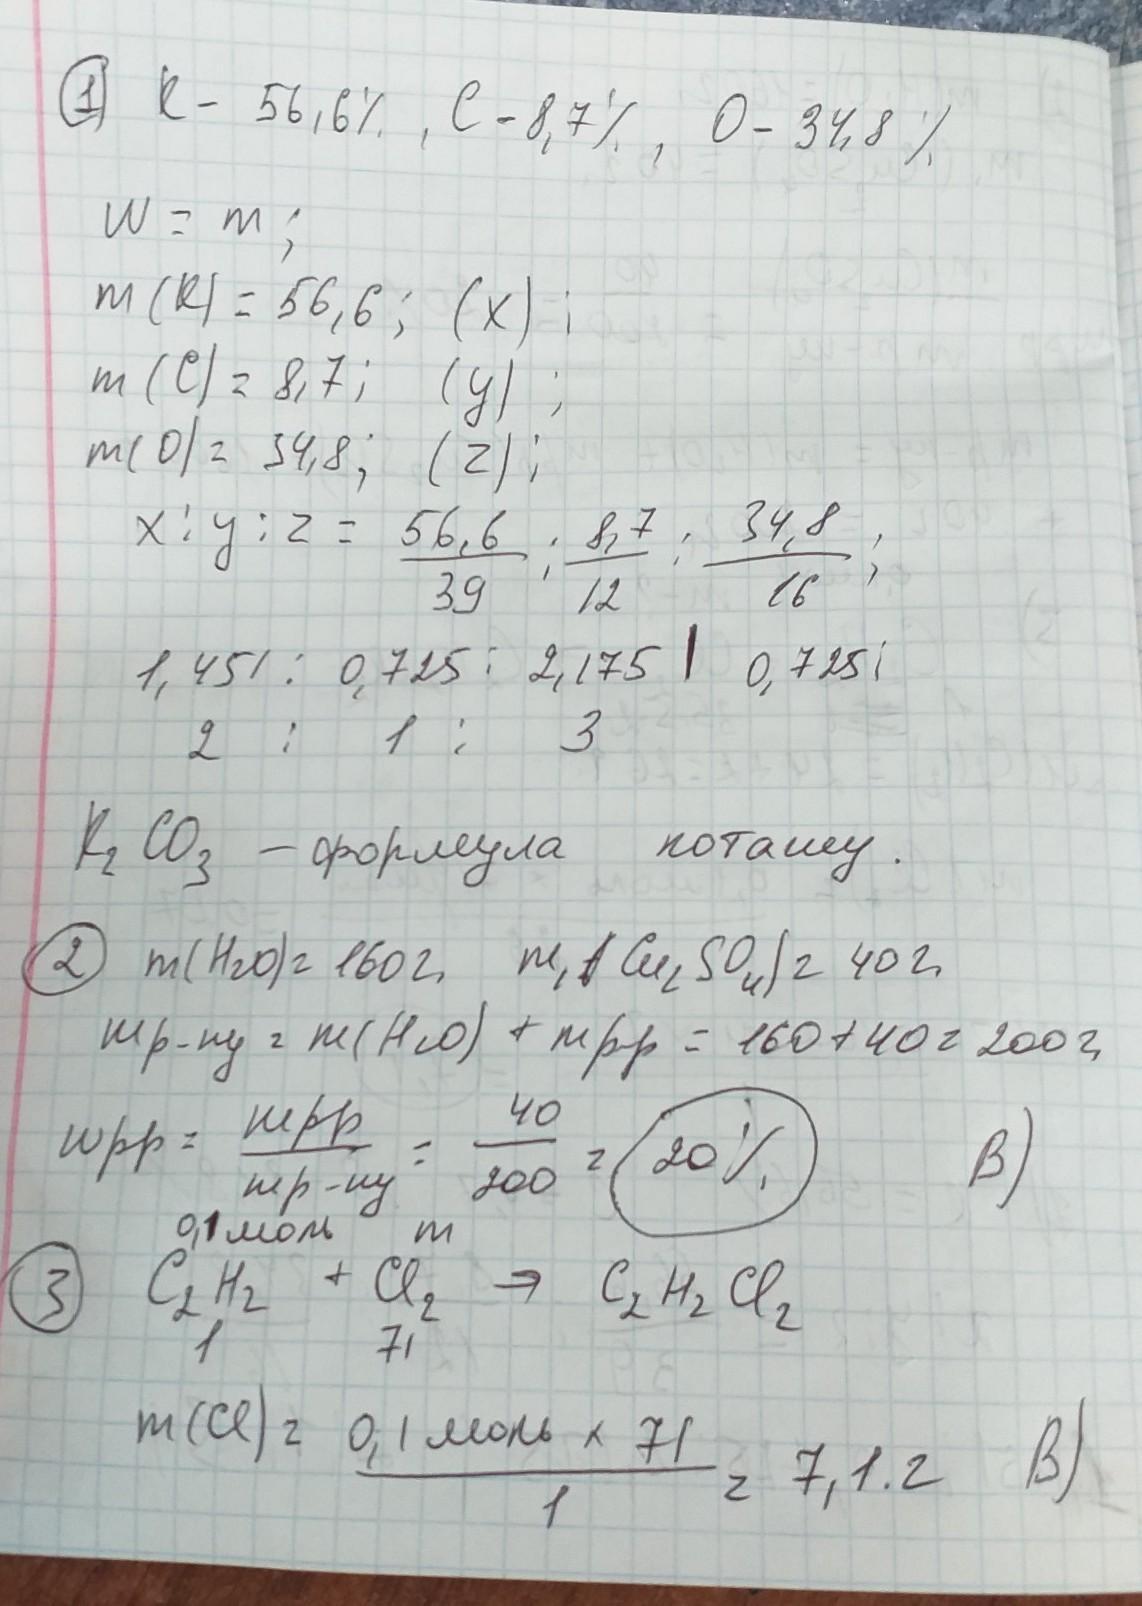 1) K - 56,6%, C - 8,7%, O - 34,8%
w = m;
m(K) = 56,6; (x);
m(C) = 8,7; (y);
m(O) = 34,8; (z);
x : y : z = 56,6/39 : 8,7/12 : 34,8/16;
1,451 : 0,725 : 2,175 | 0,725;
2 : 1 : 3
K2CO3 – формула поташу.
2) m(H2O) = 160г, m, (Cu2SO4) = 40г,
mр-ну = m(H2O) + mрр = 160 + 40 = 200г,
wрр = mрр/mр-ну = 40/200 = 20%, В)
0,1моль m
3) C2H2 + Cl2 → C2H2Cl2
1 71
m(Cl) = 0,1моль x 71 / 1 = 7,1.г В)